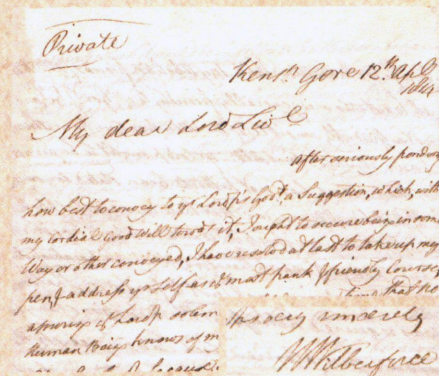 Private
Kensn. Gore 12th. Apl
My dear Lord Livl
After seriously pondering
how best to convey to yr Lordp's Govt. a Suggestion, which, with
my cordial Good Will towds. it, I ought to secure being in some
Way or other conveyed, I have resolved at last to take up my
pen & address yrself as ye most frank & friendly Course
Human Being knows of m
very sincerely
W Wilberforce